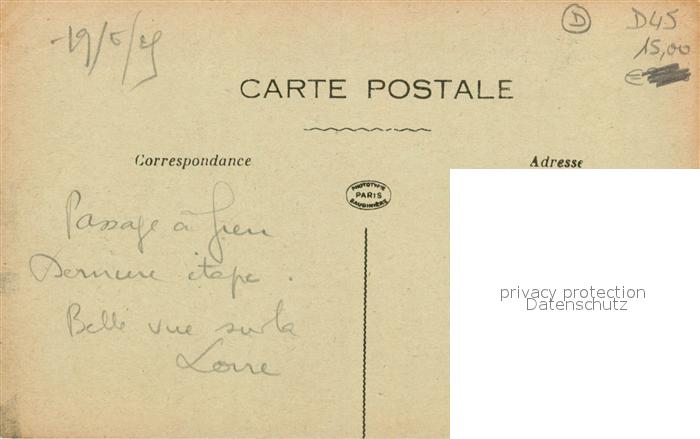 19/5/25
D
D45
15,00
€
CARTE POSTALE
Correspondance
Adresse
PHOTOTYPIE
PARIS
BAUDINIÈRE
Passage à Gien
Dernière étape.
Belle vue sur la
Loire
privacy protection
Datenschutz